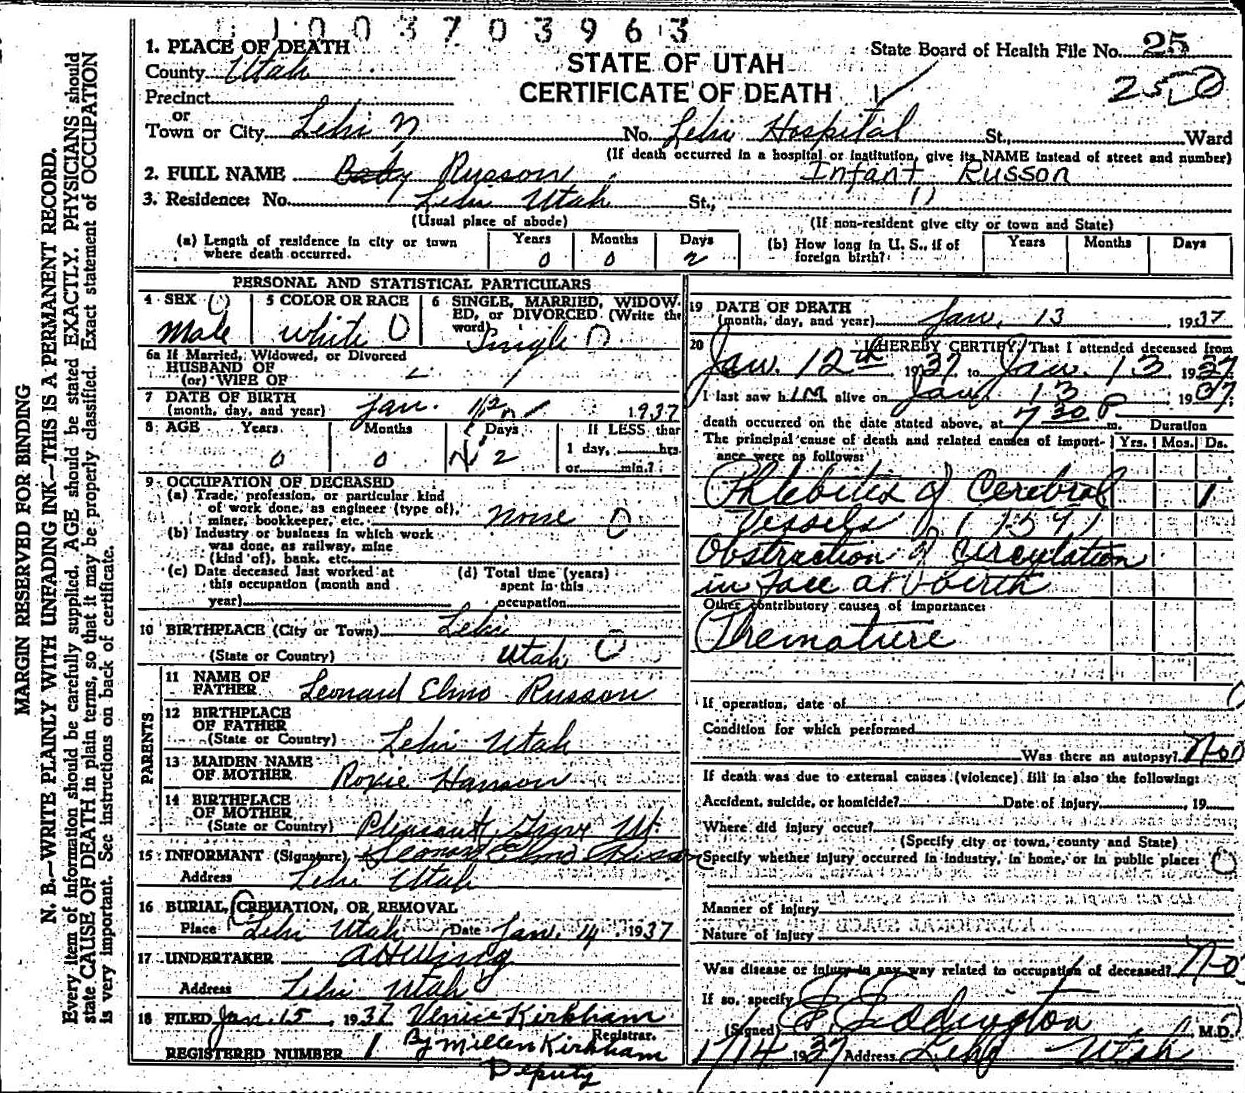 1003703963
1. PLACE OF DEATH
County Utah
Precinct
or
Town or City Lehi
STATE OF UTAH
CERTIFICATE OF DEATH
State Board of Health File No. 25
250
No. Lehi Hospital St. Ward
(If death occurred in a hospital or institution, give its NAME instead of street and number)
2. FULL NAME Baby Russon Infant Russon
3. Residence: No. Lehi Utah St.,
(Usual place of abode) (If non-resident give city or town and State)
(a) Length of residence in city or town where death occurred. Years 0 Months 0 Days 2
(b) How long in U. S., if of foreign birth? Years Months Days
PERSONAL AND STATISTICAL PARTICULARS
4 SEX Male
5 COLOR OR RACE white
6 SINGLE, MARRIED, WIDOWED, or DIVORCED (Write the word) Single
6a If Married, Widowed, or Divorced
HUSBAND OF
(or) WIFE OF
7 DATE OF BIRTH
(month, day, and year) Jan. 1937
8 AGE Years 0 Months 0 Days 2 If LESS than
1 day, hrs.
or min.?
9 OCCUPATION OF DECEASED
(a) Trade, profession, or particular kind of work done, as engineer (type of), miner, bookkeeper, etc. none
(b) Industry or business in which work was done, as railway, mine (kind of), bank, etc.
(c) Date deceased last worked at this occupation (month and year)
(d) Total time (years) spent in this occupation
10 BIRTHPLACE (City or Town) Lehi
(State or Country) Utah
PARENTS
11 NAME OF FATHER Leonard Elmo Russon
12 BIRTHPLACE OF FATHER
(State or Country) Lehi Utah
13 MAIDEN NAME OF MOTHER Roxie Hanson
14 BIRTHPLACE OF MOTHER
(State or Country) Pleasant Grove Ut.
15 INFORMANT (Signature) Leonard Elmo Russon
Address Lehi Utah
16 BURIAL, CREMATION, OR REMOVAL
Place Lehi Utah Date Jan. 14 1937
17 UNDERTAKER A H Wing
Address Lehi Utah
18 FILED Jan. 15, 1937 Venice Kirkham
Registrar.
REGISTERED NUMBER 1 By Millen Kirkham
Deputy
19 DATE OF DEATH
(month, day, and year) Jan. 13, 1937
20 I HEREBY CERTIFY, That I attended deceased from
Jan. 12th 1937 to Jan. 13 1937.
I last saw him alive on Jan 13 1937,
death occurred on the date stated above, at 7 30 P m. Duration
The principal cause of death and related causes of importance were as follows: Yrs. Mos. Ds.
Phlebites of Cerebral 1
Vessels (159)
Obstruction of Circulation
in Face at birth
Other contributory causes of importance:
Premature
If operation, date of
Condition for which performed
Was there an autopsy? No
If death was due to external causes (violence) fill in also the following:
Accident, suicide, or homicide? Date of injury , 19
Where did injury occur?
(Specify city or town, county and State)
Specify whether injury occurred in industry, in home, or in public place:
Manner of injury
Nature of injury
Was disease or injury in any way related to occupation of deceased? No
If so, specify
(Signed) Eddington, M.D.
1/14 1937 Address Lehi Utah
MARGIN RESERVED FOR BINDING
N. B.—WRITE PLAINLY WITH UNFADING INK—THIS IS A PERMANENT RECORD.
Every item of information should be carefully supplied. AGE should be stated EXACTLY. PHYSICIANS should
state CAUSE OF DEATH in plain terms, so that it may be properly classified. Exact statement of OCCUPATION
is very important. See instructions on back of certificate.